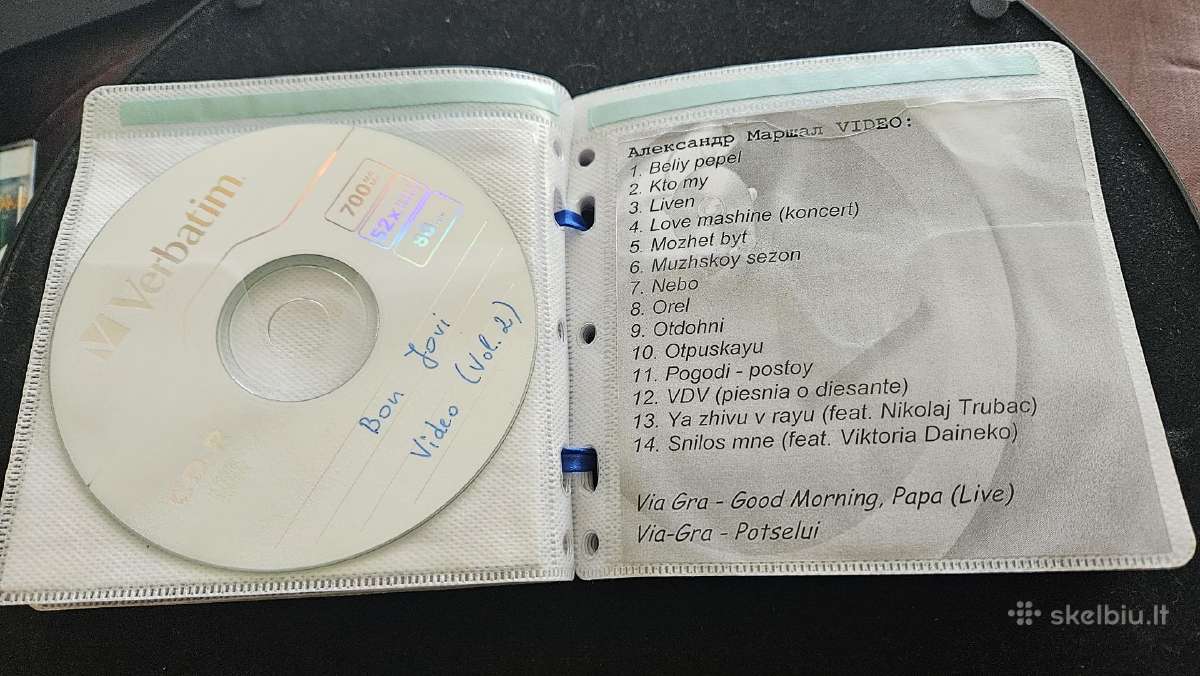 Verbatim
700 MB
52x
80 MIN
CD-R
Bon Jovi
Video (Vol. 2)
Александр Маршал VIDEO:
1. Beliy pepel
2. Kto my
3. Liven
4. Love mashine (koncert)
5. Mozhet byt
6. Muzhskoy sezon
7. Nebo
8. Orel
9. Otdohni
10. Otpuskayu
11. Pogodi - postoy
12. VDV (piesnia o diesante)
13. Ya zhivu v rayu (feat. Nikolaj Trubac)
14. Snilos mne (feat. Viktoria Daineko)
Via Gra - Good Morning, Papa (Live)
Via-Gra - Potselui
skelbiu.lt